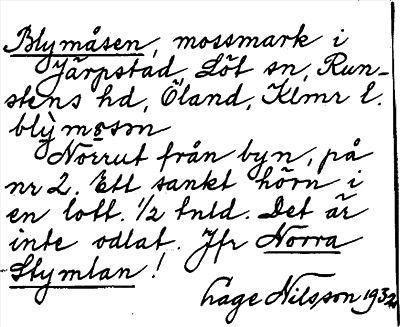 Blymåsen, mossmark i
Järpstad, Löt sn, Run-
stens hd, Öland, Klmr l.
blỳmo̱sɔn
Norrut från byn, på
nr 2. Ett sankt hörn i
en lott. 1/2 tnld. Det är
inte odlat. Jfr Norra
Stymlan!
Åage Nilsson 1932